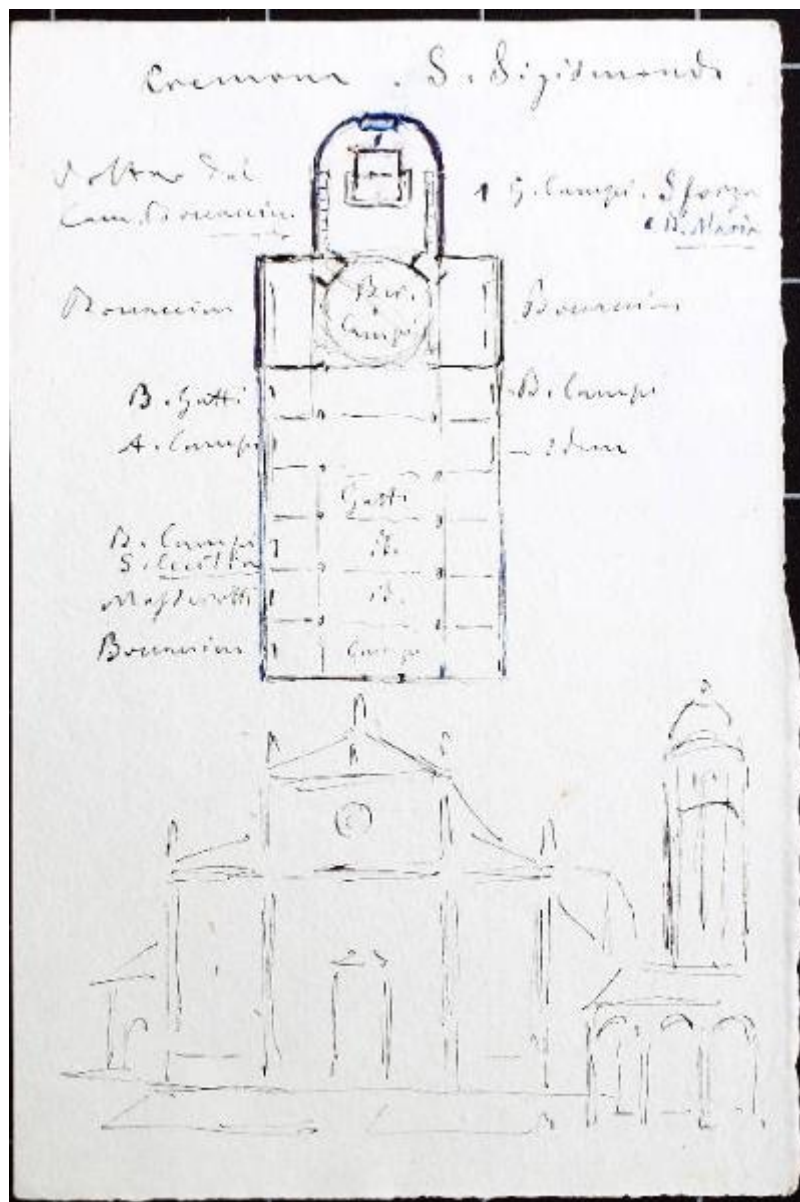 Cremona . S. Sigismondo
Cam. Boccaccin.
1 G. Campi. Sforza
e B. Maria
Boccaccino
Ber.
Campi
Boccaccino
B. Gatti
B. Campi
A. Campi
idem
Gatti
B. Campi
S. Cecilia
id.
id.
Boccaccino
Campi